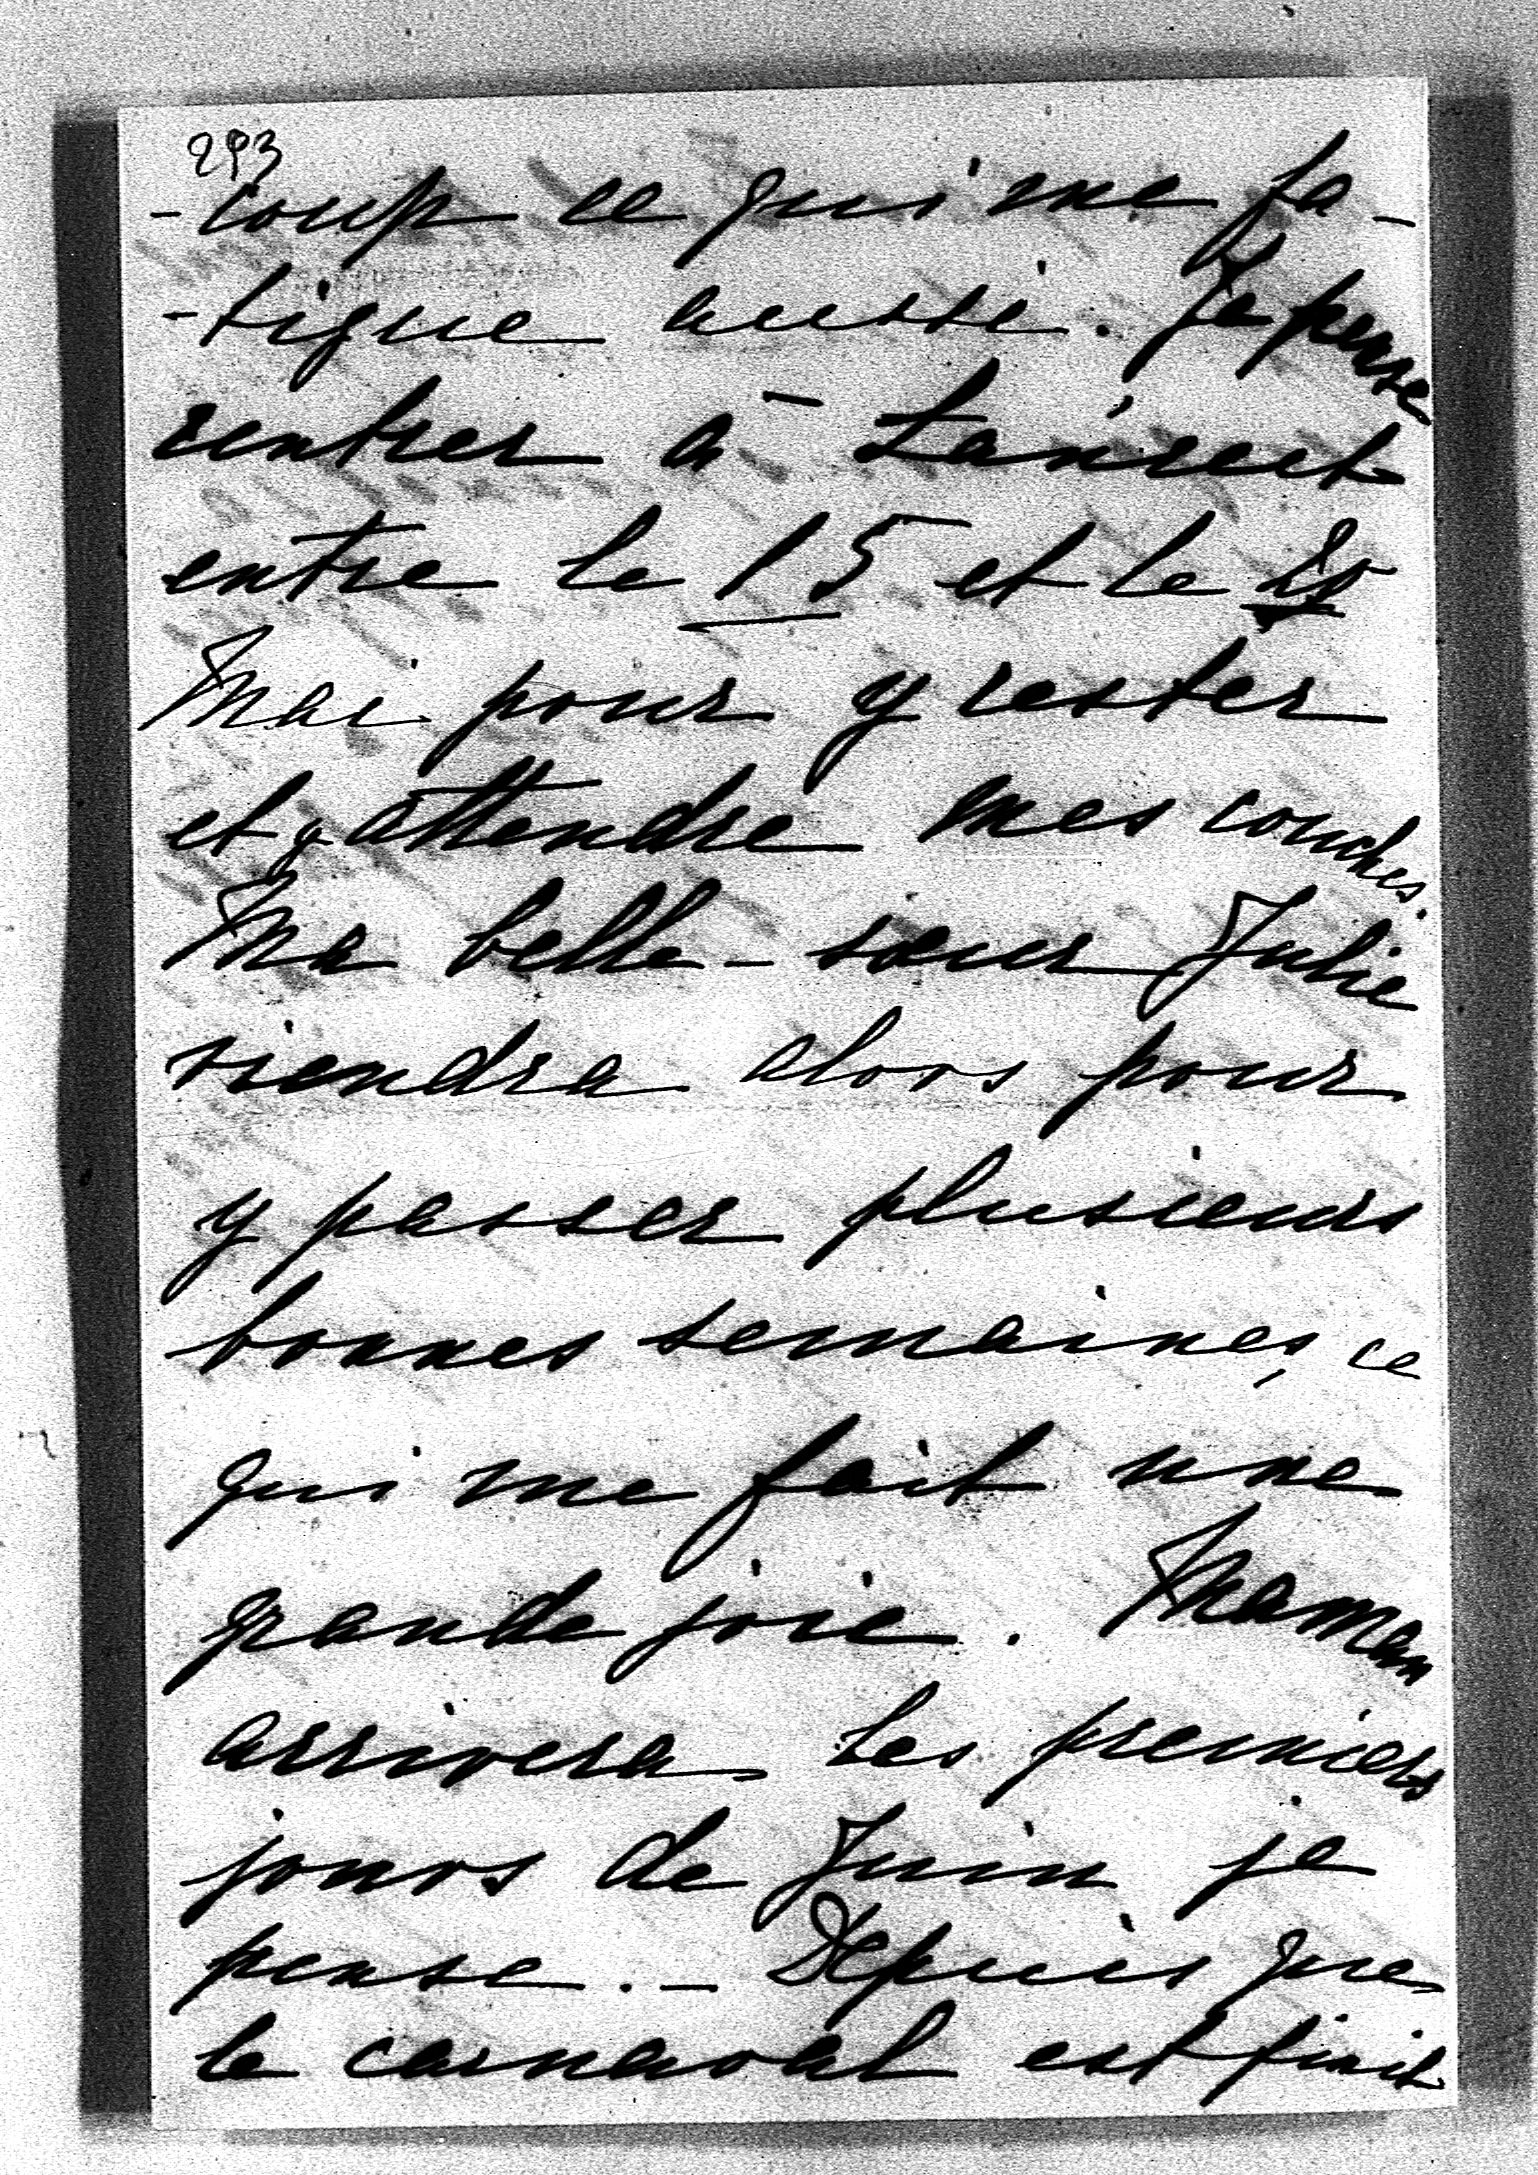 293
-coup ce qui me fa-
-tigue aussi. Je pense
rentrer à - Lanrest
entre le 15 et le 18
Mai pour y rester
et y attendre mes couches.
Ma belle-sœur Julie
viendra alors pour
y passer plusieurs
bonnes semaines, ce
qui me fait une
grande joie. Maman
arrivera les premiers
jours de Juin je
pense. - Depuis que
le carnaval est finit